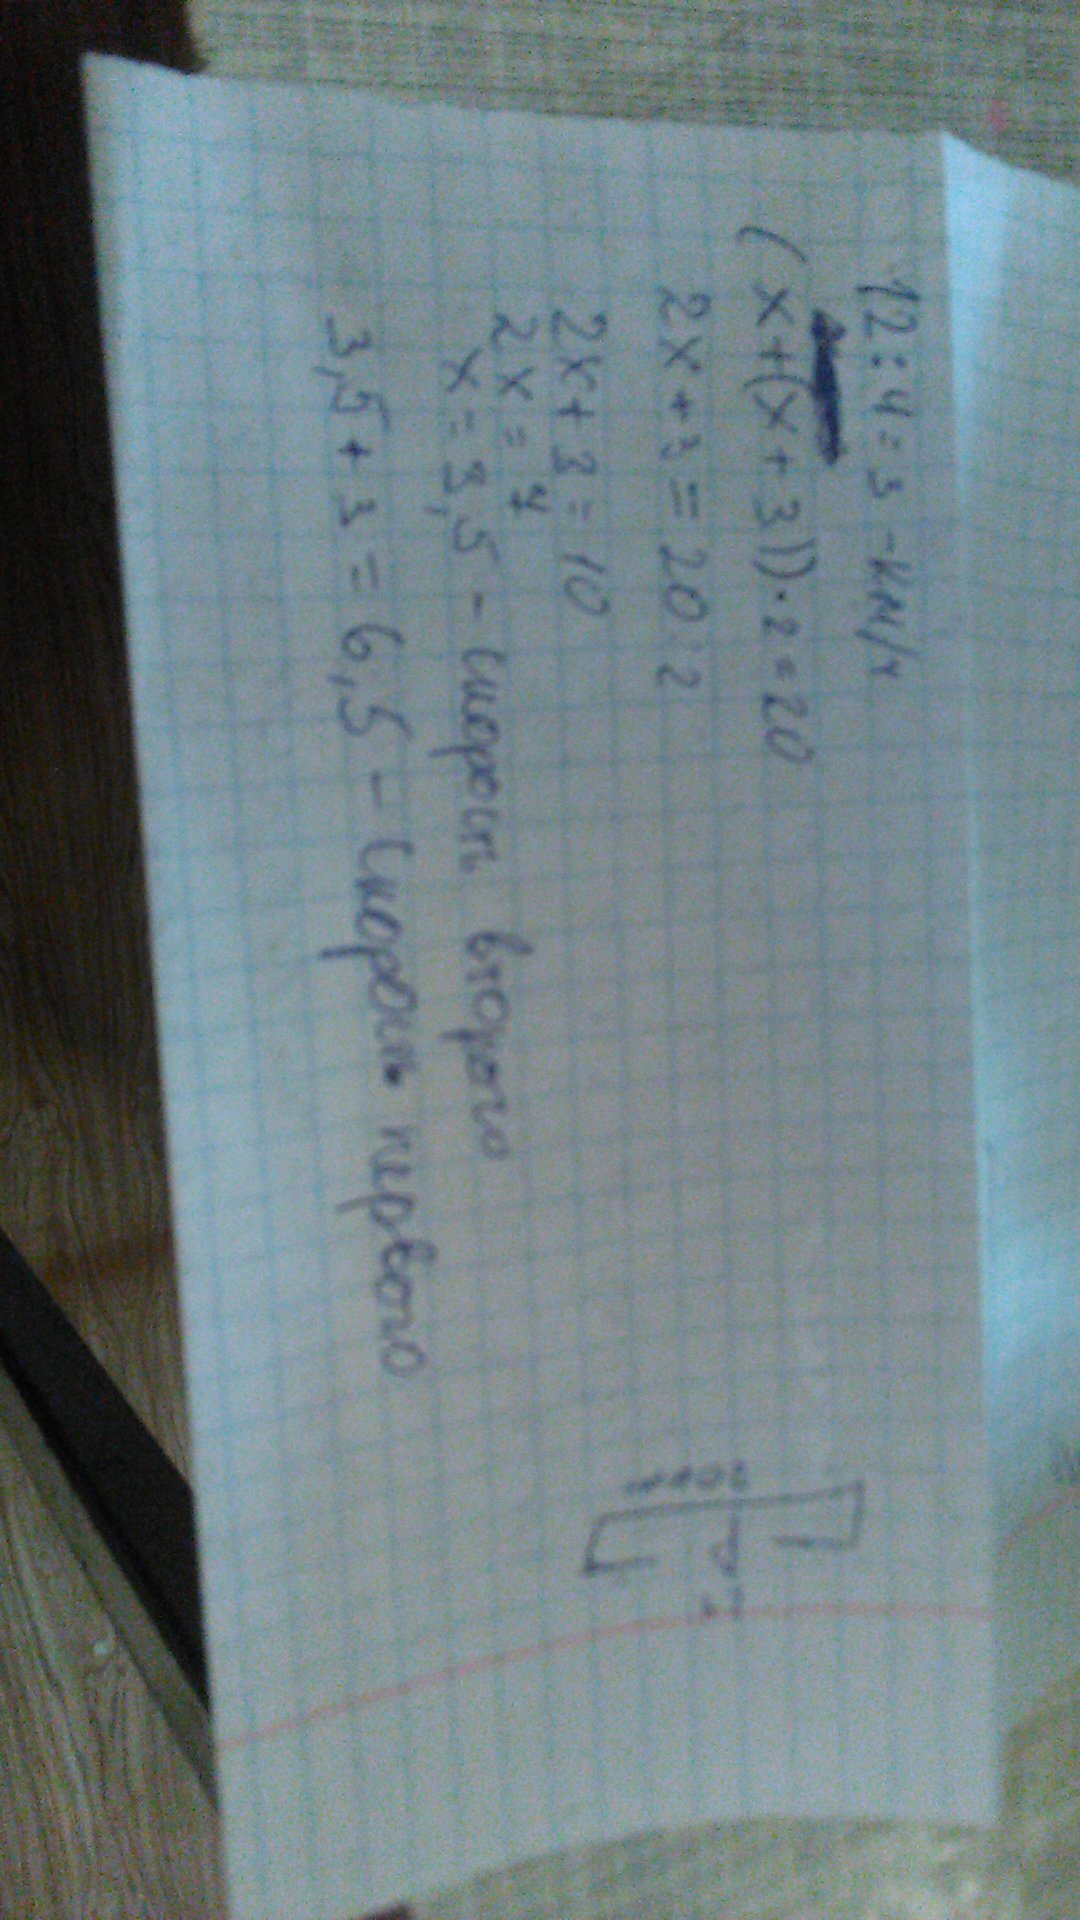 12:4=3 -км/ч
(x+(x+3))·2=20
2x+3=20:2
2x+3=10
2x=7
x=3,5 - скорость второго
3,5+3=6,5 - скорость первого
20км